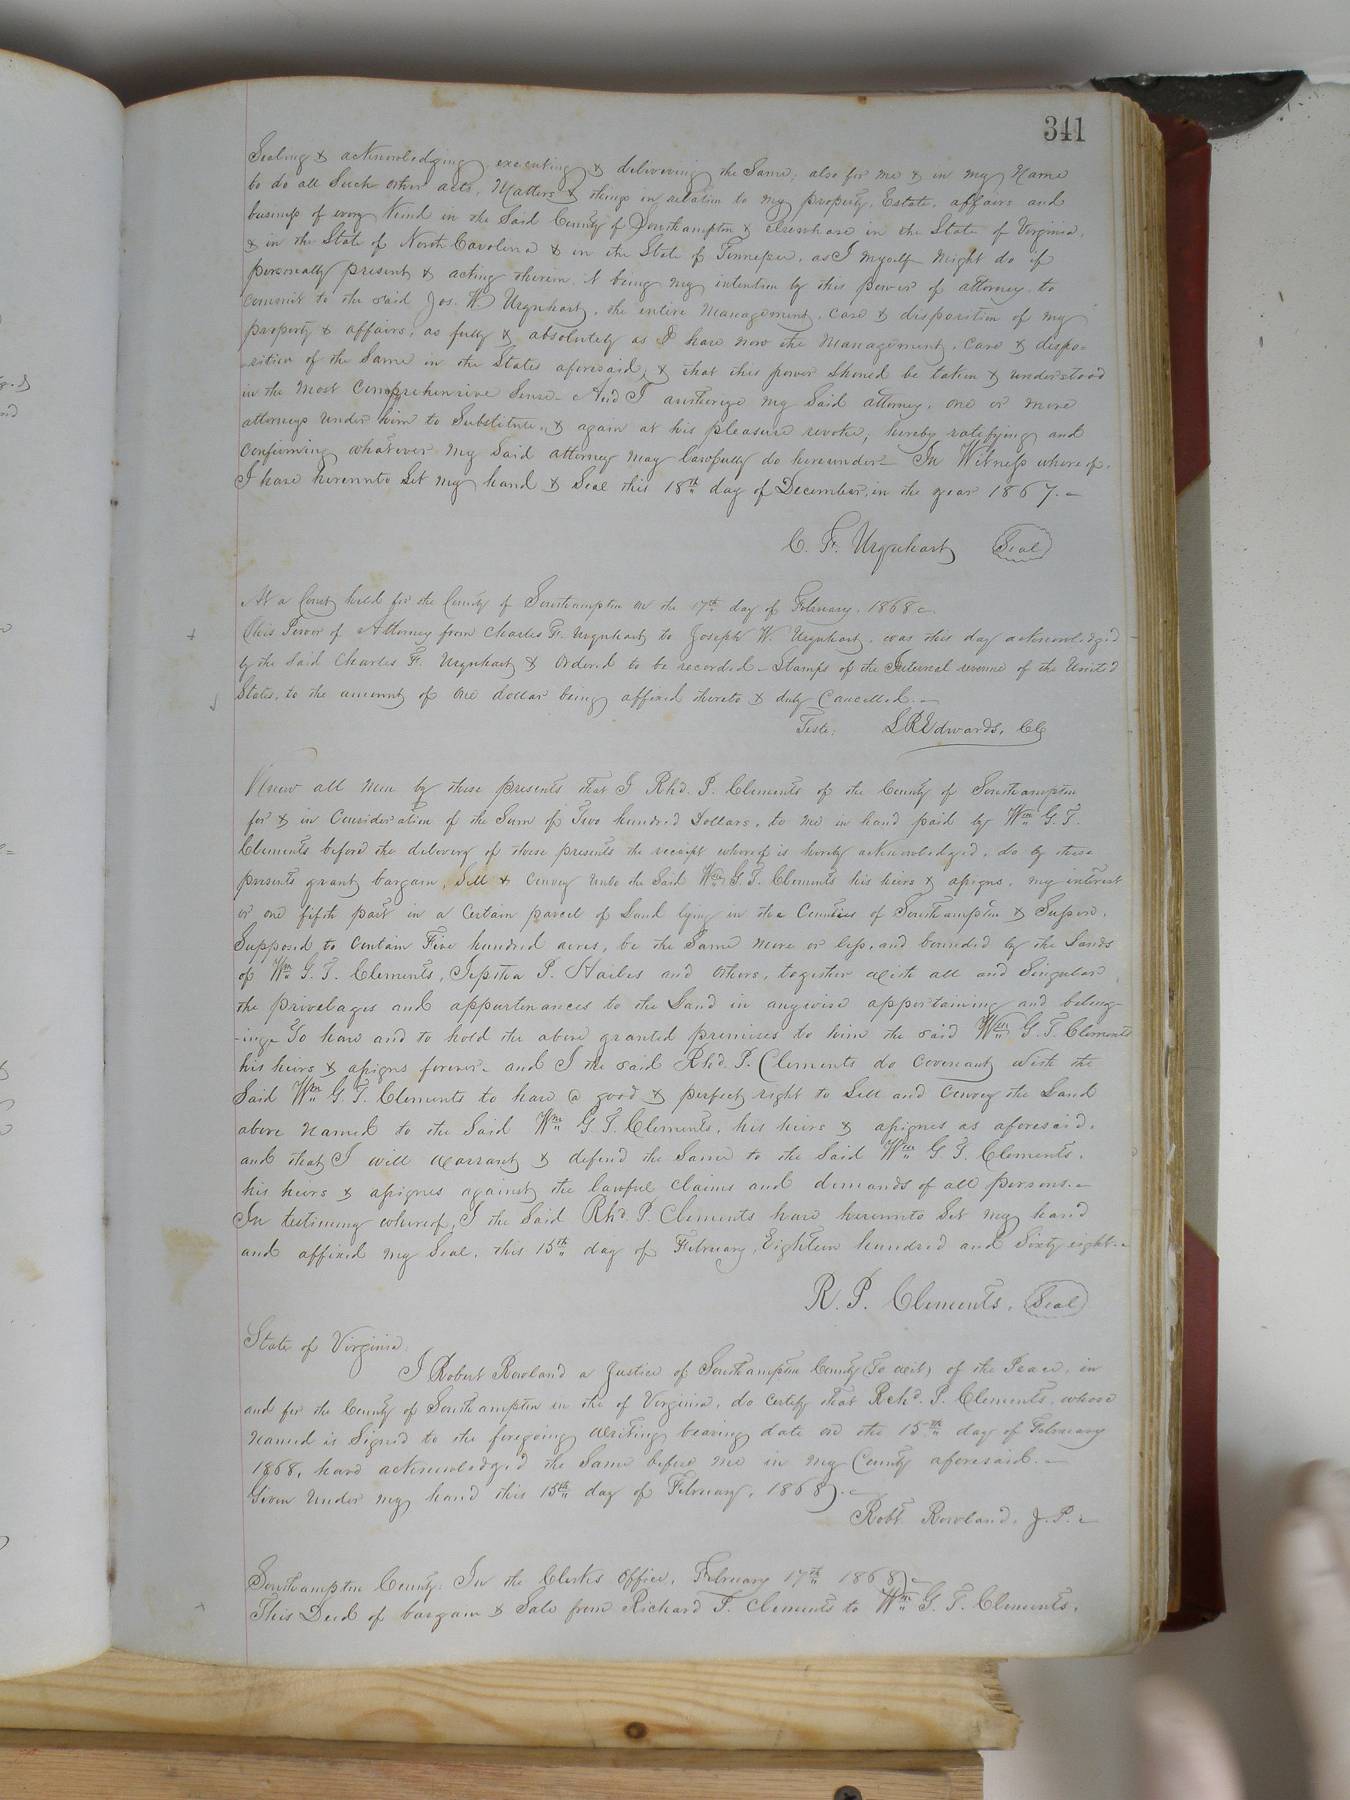 341
Sealing & acknowledging, executing & delivering the Same, also for me & in my Name
to do all Such other acts, Matters & things in relation to my property, Estate, affairs and
business of every Kind in the Said County of Southampton & elsewhere in the State of Virginia,
& in the State of North Carolina & in the State of Tennessee, as I myself might do if
personally present & acting therein, it being my intention by this power of attorney to
commit to the said Jos. W. Urquhart, the entire Management, care & disposition of my
property & affairs, as fully & absolutely as I have now the Management, care & dispo-
sition of the Same in the States aforesaid, & that this power Should be taken & understood
in the most Comprehensive Sense - And I authorize my Said attorney, one or more
attorneys under him to Substitute, & again at his pleasure revoke, hereby ratifying and
Confirming whatever my Said attorney may lawfully do hereunder - In Witness whereof,
I have hereunto Set my hand & Seal this 18th day of December, in the year 1867. -
C. F. Urquhart Seal
At a Court held for the County of Southampton on the 17th day of February, 1868 -
This Power of Attorney from Charles F. Urquhart to Joseph W. Urquhart, was this day acknowledged
by the Said Charles F. Urquhart & Ordered to be recorded - Stamps of the Internal revenue of the United
States, to the amount of one dollar being affixed thereto & duly Cancelled. -
Teste, L R Edwards, CC
Know all Men by these presents that I Rhd. P. Clements of the County of Southampton
for & in Consideration of the Sum of Two hundred Dollars, to me in hand paid by Wm G. T.
Clements before the delivery of these presents the receipt whereof is hereby acknowledged, do by these
presents grant bargain, Sell & Convey unto the Said Wm G. T. Clements his heirs & assigns, my interest
or one fifth part in a Certain parcel of Land lying in the Counties of Southampton & Sussex,
Supposed to Contain Five hundred acres, be the Same More or less, and bounded by the Lands
of Wm G. T. Clements, P. and others, together with all and Singular
the privelages and appurtenances to the Land in anywise appertaining and belong-
-ing - To have and to hold the above granted premises to him the said Wm G. T. Clements
his heirs & assigns forever - and I the said Rhd. P. Clements do Covenant with the
Said Wm G. T. Clements to have a good & perfect right to Sell and Convey the Land
above Named to the Said Wm G. T. Clements, his heirs & assignes as aforesaid,
and that I will warrant & defend the Same to the Said Wm G. T. Clements,
his heirs & assignes against the lawful claims and demands of all persons. -
In testimony whereof, I the Said Rhd. P. Clements have hereunto Set my hand
and affixed my Seal, this 15th day of February, Eighteen hundred and Sixty eight. -
R. P. Clements, Seal
State of Virginia,
I Robert Rowland a Justice of Southampton County (To wit) of the Peace, in
and for the County of Southampton in the of Virginia, do certify that Rchd. P. Clements, whose
Named is Signed to the foregoing writing bearing date on the 15th day of February
1868, hand acknowledged the Same before me in my County aforesaid. -
Given Under my hand this 15th day of February, 1868). -
Robt Rowland, J. P. -
Southampton County: In the Clerks Office, February 17th 1868) -
This Deed of bargain & Sale from Richard P. Clements to Wm G. T. Clements,